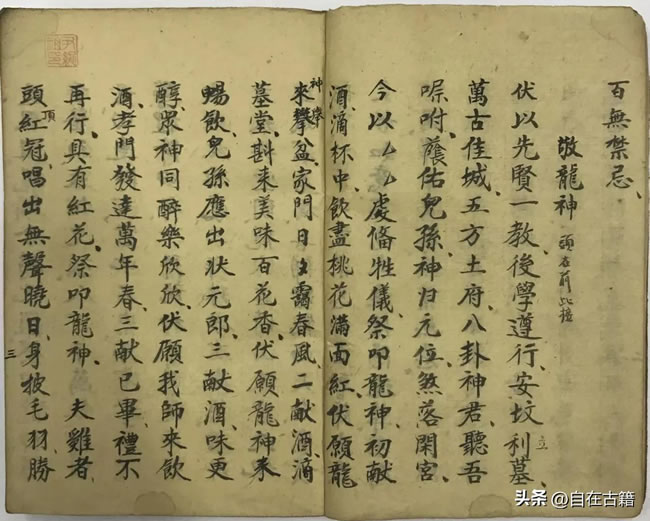 百無禁忌、
敬龍神 頭在前此擡
伏以先賢一教、後學遵行、安坟利墓、立
萬古佳城、五方土府、八卦神君、聽吾
嘱咐、蔭佑兒孫、神归元位、煞落閑宮、
今以厶厶處俻牲儀、祭叩龍神、初献
酒、滴杯中、飲盡桃花滿面紅、伏願龍
神来攀盆、家門日夕靄春風、二献酒、滴
墓堂、斟来美味百花香、伏願龍神来
暢飲、兒孫應出状元郎、三献酒、味更
醇、眾神同醉樂欣欣、伏願我師來飲
酒、孝門發達萬年春、三献已畢、禮不
再行、具有紅花、祭叩龍神、夫雞者、
頭頂紅冠、唱出無聲曉日、身披毛羽勝
三
头条 @自在古籍